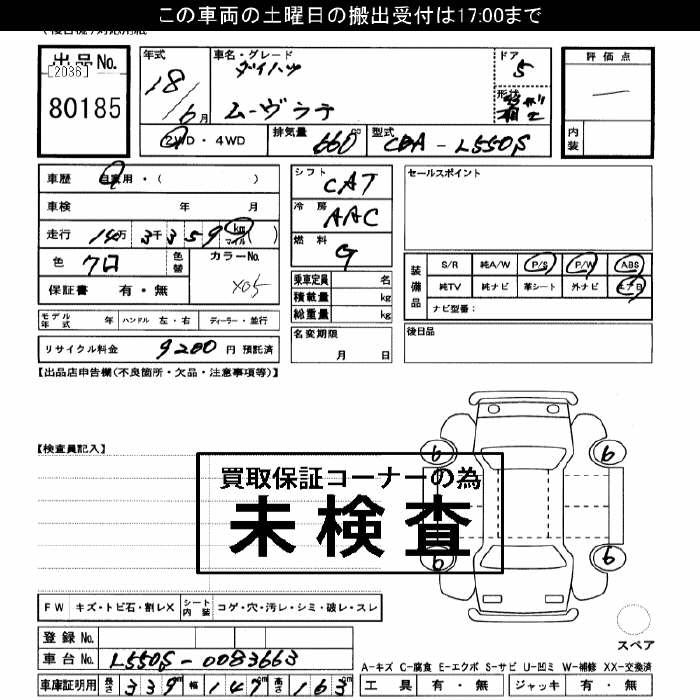 この車両の土曜日の搬出受付は17:00まで
出品No.
[2036]
80185
年式
18/6月
車名・グレード
ダイハツ
ムーヴラテ
ドア
5
形状
評価点
内装
2WD・4WD
排気量 660 cc
型式 CBA-L550S
車歴 自家用・( )
車検 年 月
走行 14万3千359 km マイル ( )
色 クロ
色替
カラーNo.
X05
保証書 有・無
シフト
CAT
冷房
AAC
燃料
G
乗車定員 名
積載量 kg
総重量 kg
セールスポイント
装備品
S/R 純A/W P/S P/W ABS
純TV 純ナビ 革シート 外ナビ エアB
ナビ型番:
モデル年式 年 ハンドル 左・右 ディーラー・並行
名変期限
月 日
後日品
リサイクル料金 9200 円 預託済
【出品店申告欄(不良箇所・欠品・注意事項等)】
【検査員記入】
買取保証コーナーの為
未検査
6
6
6
6
FW キズ・トビ石・割レX シート内装 コゲ・穴・汚レ・シミ・破レ・スレ
スペア
登録No.
車台No. L550S-0083663
A-キズ C-腐食 E-エクボ S-サビ U-凹ミ W-補修 XX-交換済
車庫証明用 長さ 339cm 幅 147cm 高さ 163cm
工具 有・無 ジャッキ 有・無